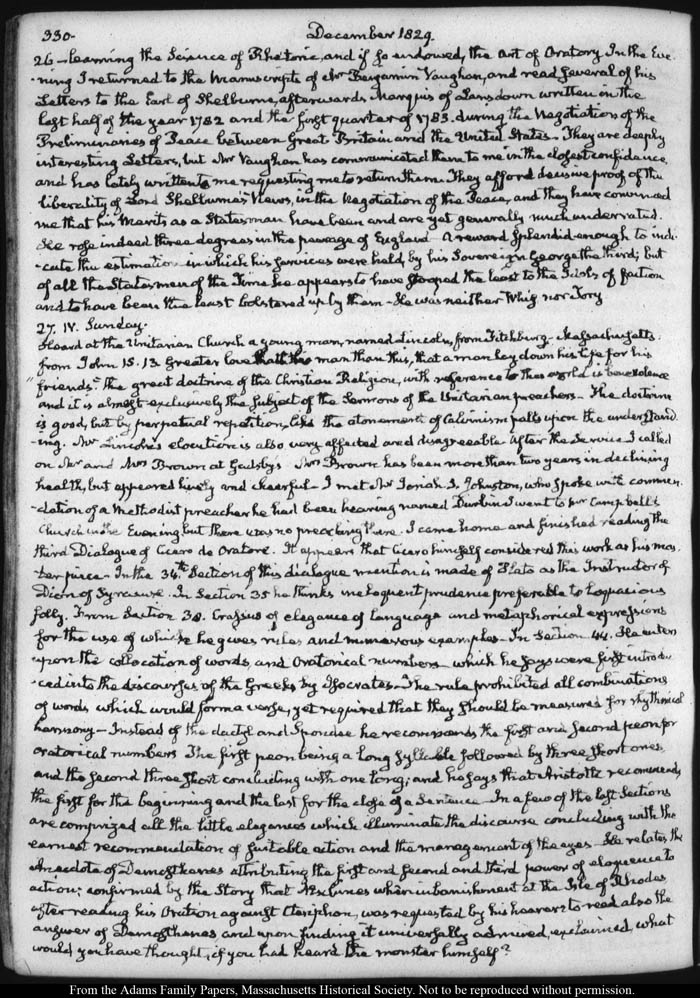 330-
December 1829.
26 - learning the Science of Rhetoric, and if so endowed, the art of Oratory In the Eve-
-ning I returned to the Manuscripts of Mr Benjamin Vaughan, and read several of his
Letters to the Earl of Shelburne, afterwards Marquis of Lansdown written in the
last half of the year 1782 and the first quarter of 1783. during the Negotiation of the
Preliminaries of Peace between Great-Britain and the United States - They are deeply
interesting Letters, but Mr Vaughan has communicated them to me in the closest confidence,
and has lately written to me requesting me to return them. They afford decisive proof of the
liberality of Lord Shelburne's Views, in the Negotiation of the Peace, and they have convinced
me that his Merits as a Statesman have been and are yet generally much underrated.
He rose indeed three degrees in the peerage of England - A reward splendid enough to indi-
-cate the estimation in which his services were held, by his Sovereign George the third; but
of all the Statesmen of the Time he appears to have stooped the least to the Idols of faction
and to have been the least bolstered up by them - He was neither Whig nor Tory
27. IV. Sunday.
Heard at the Unitarian Church a young man, named Lincoln, from Fitchburg - Massachusetts.
from John 15. 13 Greater love hath no man than this, that a man lay down his life for his
"friends." The great doctrine of the Christian Religion, with reference to this world is benevolence
and it is almost exclusively the subject of the Sermons of the Unitarian preachers - The doctrine
is good, but by perpetual repetition, like the atonement of Calvinism palls upon the understand-
-ing. Mr Lincoln's elocution is also very affected and disagreeable After the Service I called
on Mr and Mrs Brown at Gadsby's Mrs Brown has been more than two years in declining
health, but appeared lively and cheerful - I met Mr Josiah S. Johnston, who spoke with commen-
-dation of a Methodist preacher he had been hearing named Durbin I went to Mr Campbell's
Church in the Evening but there was no preaching there. I came home and finished reading the
third Dialogue of Cicero de Oratore. It appears that Cicero himself considered this work as his mas-
ter piece - In the 34th Section of this dialogue mention is made of Plato as the Instructor of
Dion of Syracuse. In Section 35 he thinks ineloquent prudence preferable to loquacious
folly. From Section 38. Crassus of elegance of language and metaphorical expressions
for the use of which he gives rules and numerous examples - In Section 44. He enters
upon the collocation of words, and Oratorical numbers which he says were first introdu-
-ced into the discourses of the Greeks by Isocrates - The rule prohibited all combinations
of words which would form a verse, yet required that they should be measured for rhythmical
harmony - Instead of the dactyl and Spondee he recommends the first and second peon for
oratorical numbers The first peon being a long syllable followed by three short ones,
and the second three short concluding with one long; and he says that Aristotle recommends
the first for the beginning and the last for the close of a Sentence - In a few of the last Sections
are comprized all the little elegances which illuminate the discourse concluding with the
earnest recommendation of suitable action and the management of the eyes - He relates the
Anecdote of Demosthenes attributing the first and second and third power of eloquence to
action; confirmed by the Story that Æschines when in banishment at the Isle of Rhodes
after reading his Oration against Ctesiphon, was requested by his hearers to read also the
answer of Demosthenes and upon finding it universally admired, exclaimed, what
would you have thought, if you had heard the monster himself?
From the Adams Family Papers, Massachusetts Historical Society. Not to be reproduced without permission.